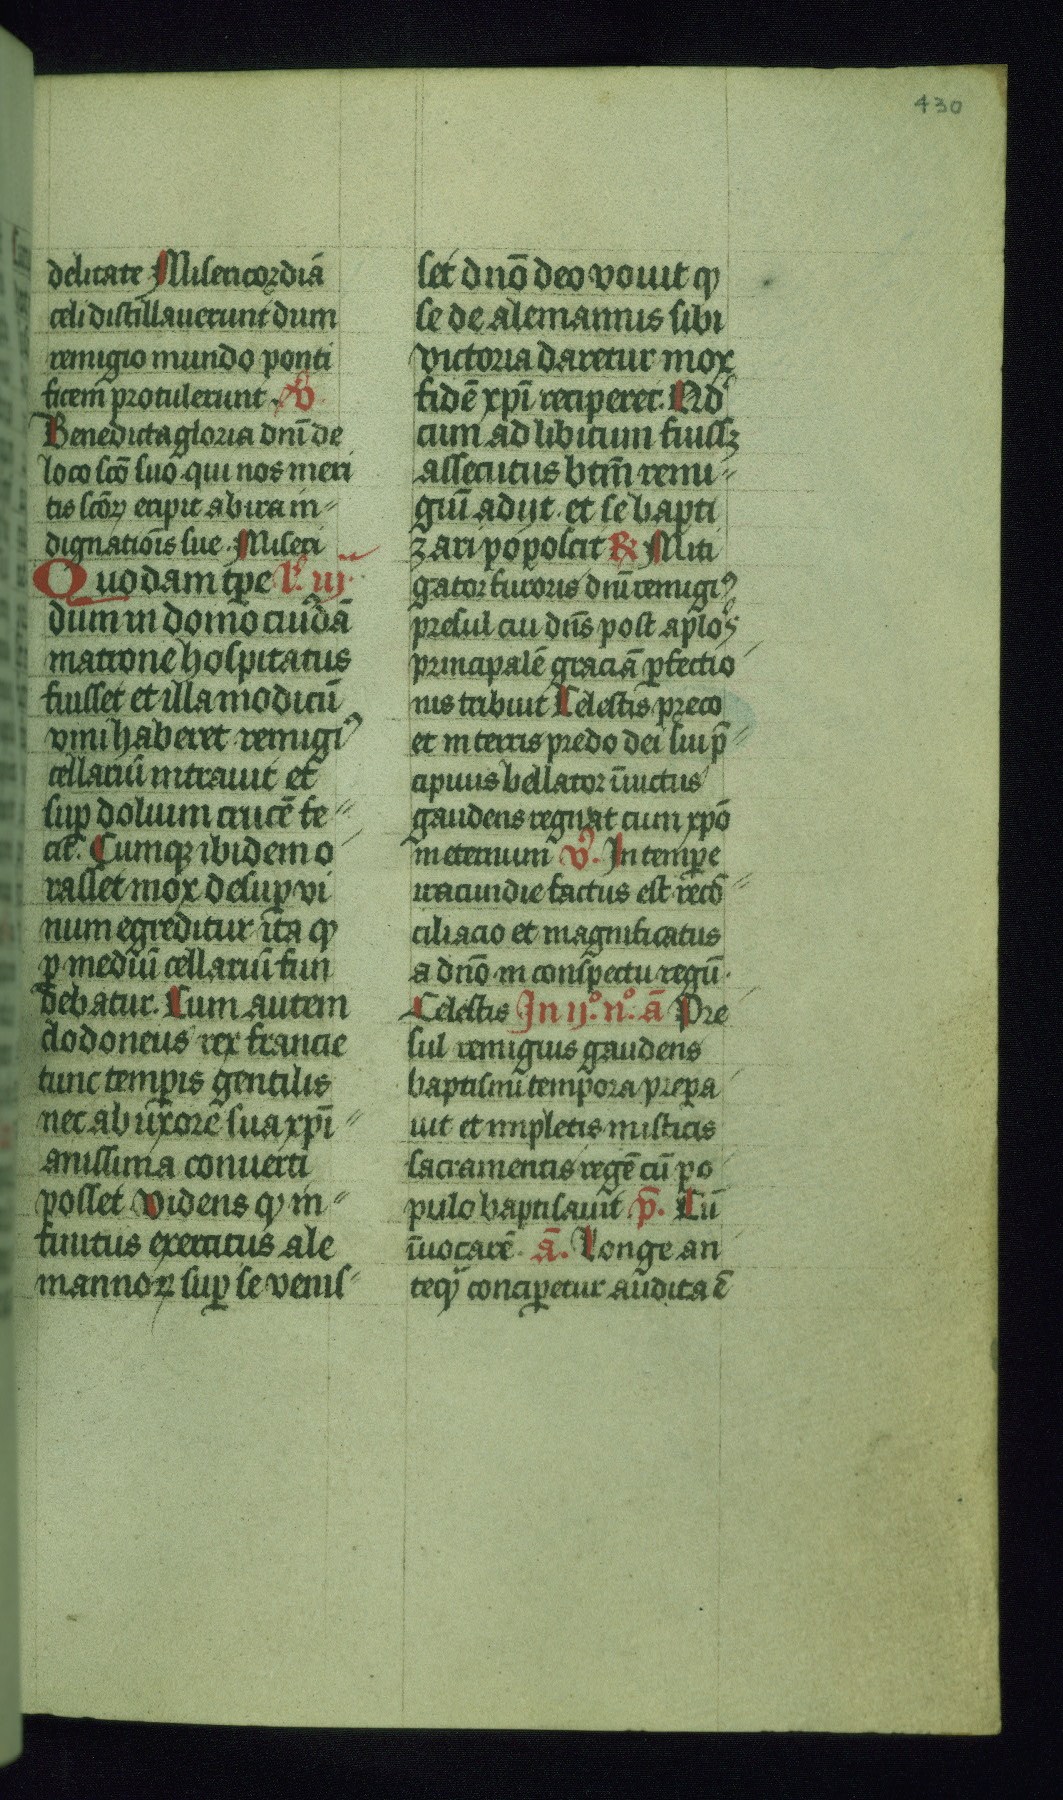 430
delitate Misericordiā
celi distillauerunt dum
remigio mundo ponti
ficem̄ protulerunt. V̄
Benedicta gloria dnī de
loco scō suo qui nos meri
tis scōꝝ eripit ab ira in-
dignatiōis sue. Miseri
Quodam tꝑe L̄. iij.
dum in domo cuiꝰdā
matrone hospitatus
fuisset et illa modicū
vini haberet remigiꝰ
cellariū intrauit et
suꝑ dolium crucē fe-
cit. Cumqꝫ ibidem o
rasset mox desuꝑ vi
num egreditur ita qꝫ
ꝑ mediū cellariū fun
debatur. Cum autem
clodoneus rex francie
tunc temꝑis gentilis
nec ab uxore sua xp̄i-
anissima conuerti
posset Videns qꝫ in-
finitus exercitus ale
mannoꝝ suꝑ se venis-
set dnō deo vouit qꝫ
se de alemannis sibi
victoria daretur mox
fidē xp̄i reciperet. Qd̄
cum ad libitum fuissꝫ
assecutus btm̄ remi-
giū adijt et se bapti
zari poposcit ℞ Miti
gator furoris dnī remigiꝰ
presul cui dn̄s post aplōs
principalē graciā ꝑfectio
nis tribuit Celestis preco
et in terris predo dei sui p̄-
cipuus bellator īuictus
gaudens regnat cum xpō
in eternum V̄. In tempe
iracundie factus est recō-
ciliacio et magnificatus
a dnō in conspectu regū.
Celestis In ijº. nº. ā Pre
sul remigius gaudens
baptismi tempora preꝑa
uit et impletis misticis
sacramentis regē cū po
pulo baptisauit p̄. Cū
īuocarē. ā. Longe an
teqꝫ conciꝑetur audita ē